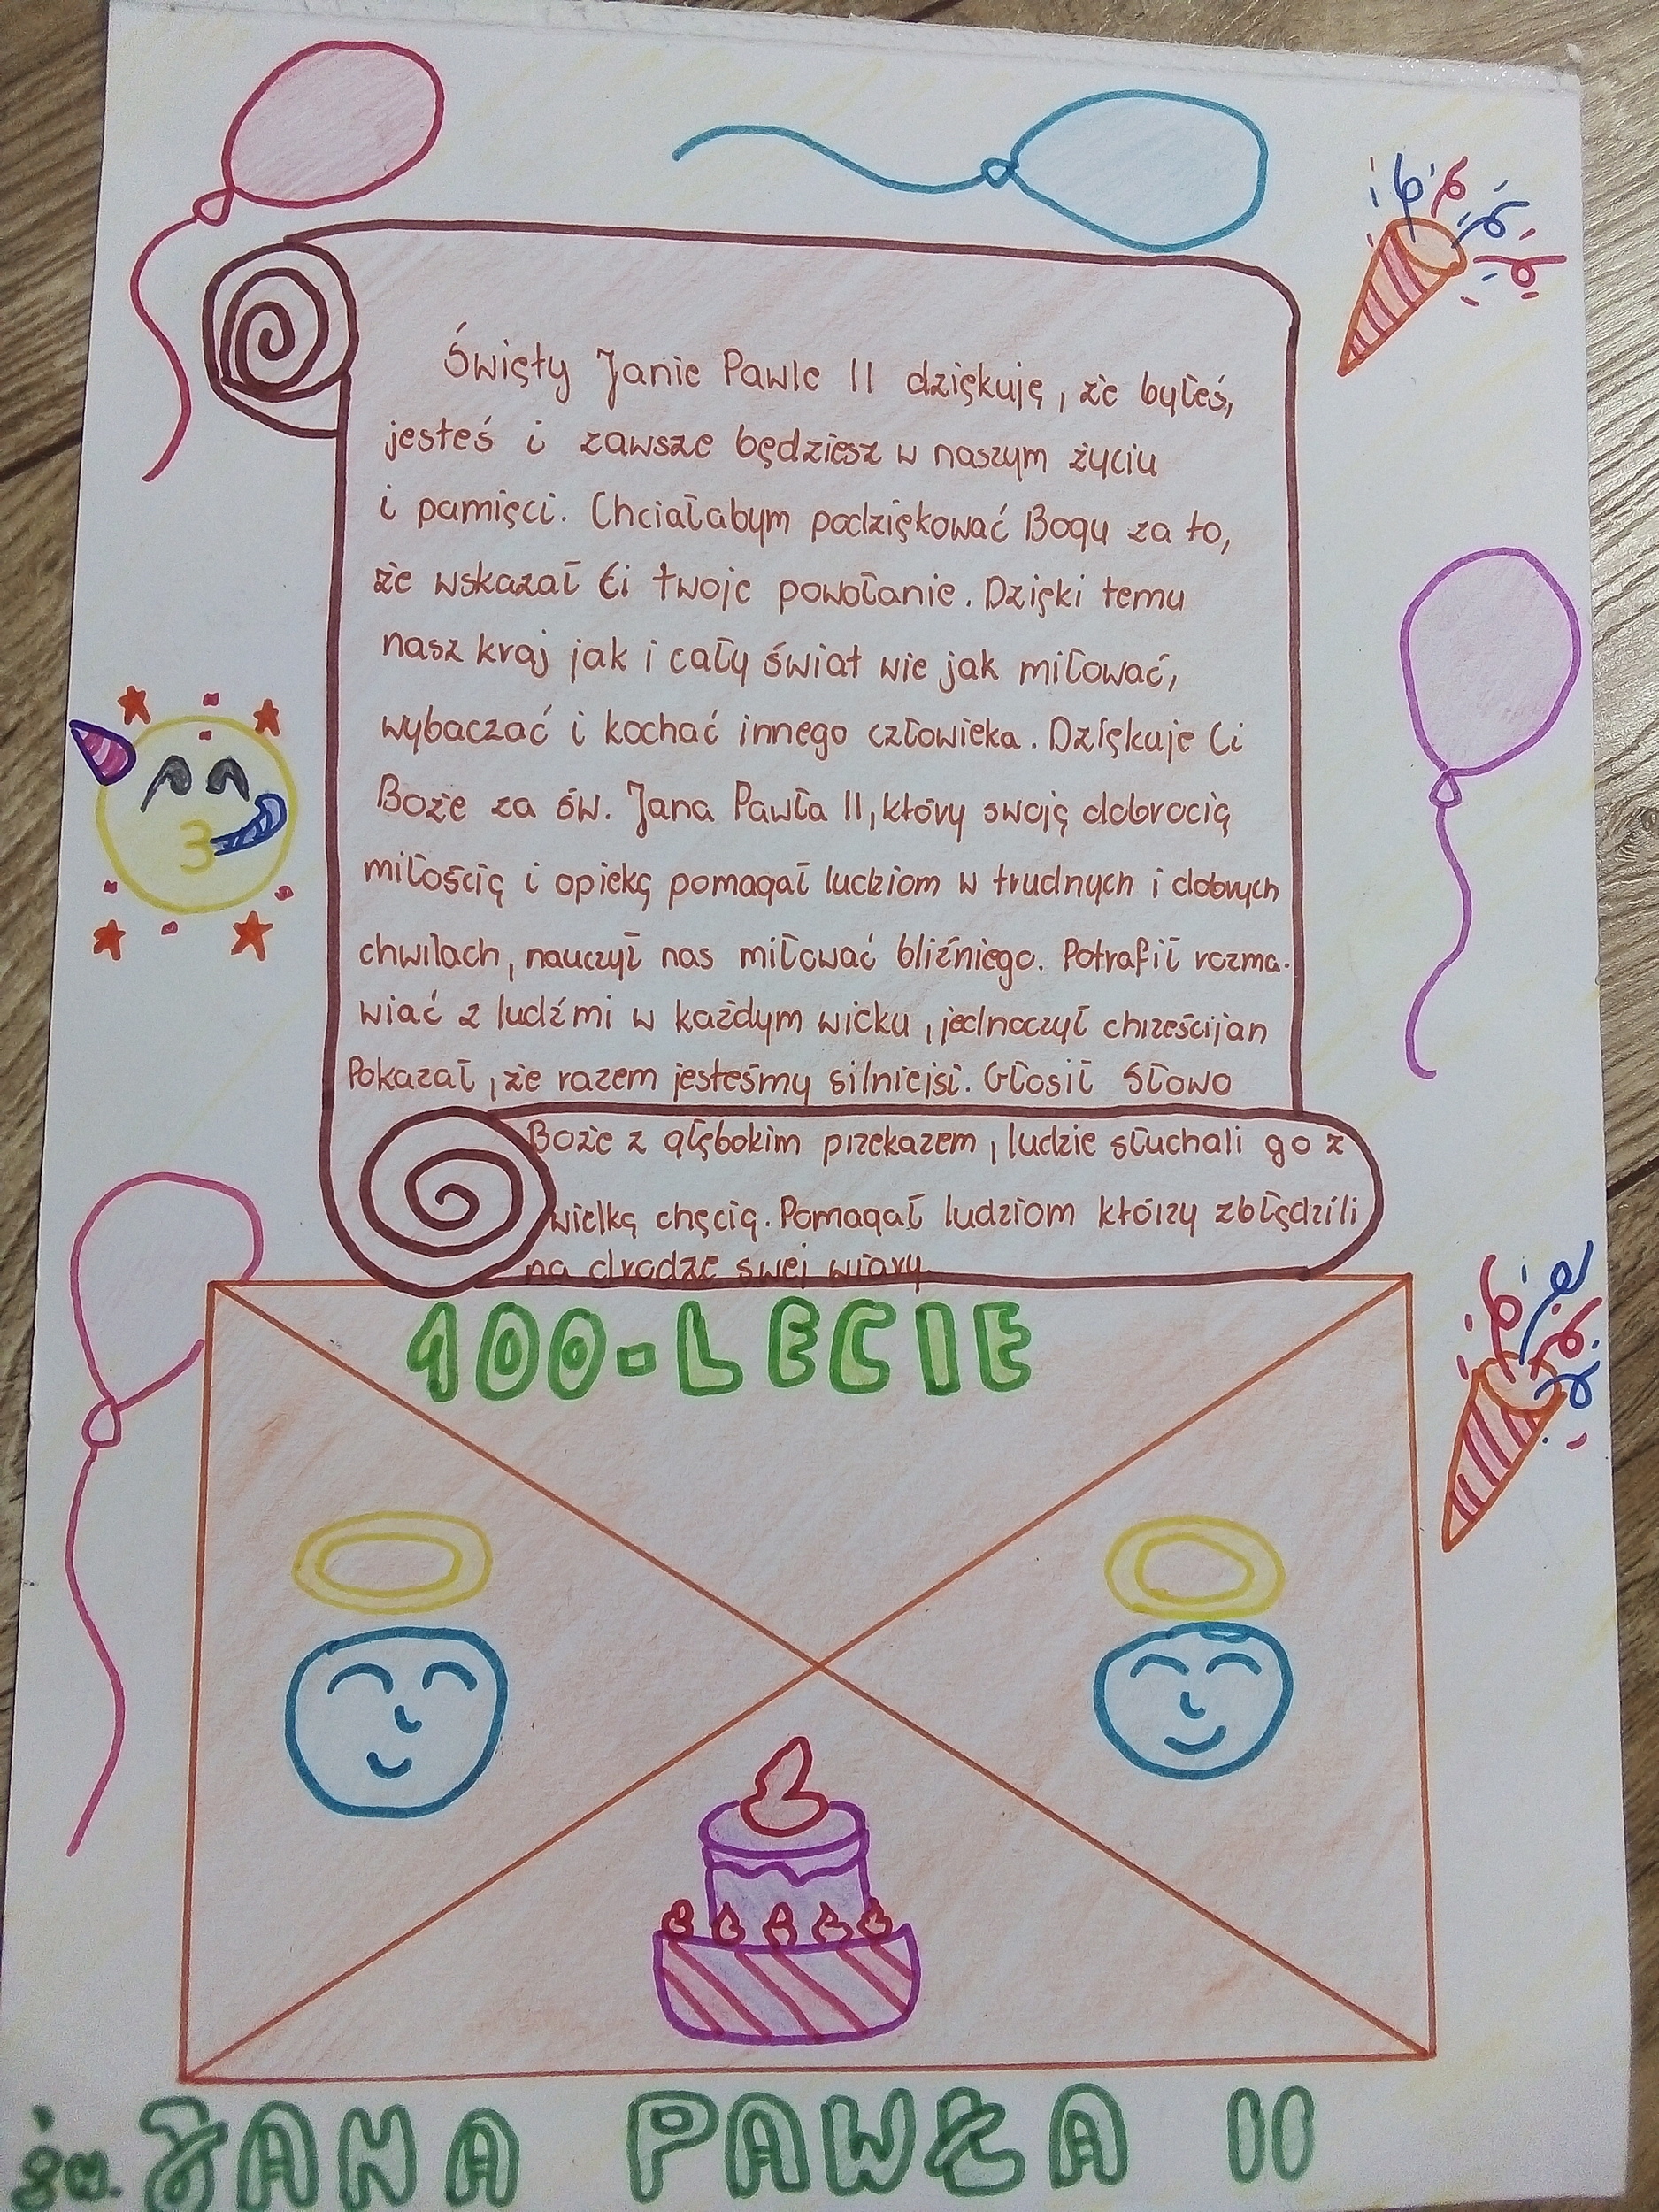 Święty Janie Pawle II dziękuję, że byłeś,
jesteś i zawsze będziesz w naszym życiu
i pamięci. Chciałabym podziękować Bogu za to,
że wskazał Ci twoje powołanie. Dzięki temu
nasz kraj jak i cały świat wie jak miłować,
wybaczać i kochać innego człowieka. Dziękuje Ci
Boże za św. Jana Pawła II, który swoją dobrocią
miłością i opieką pomagał ludziom w trudnych i dobrych
chwilach, nauczył nas miłować bliźniego. Potrafił rozma-
wiać z ludźmi w każdym wieku, jednoczył chrześcijan
Pokazał, że razem jesteśmy silniejsi. Głosił Słowo
Boże z głębokim przekazem, ludzie słuchali go z
wielką chęcią. Pomagał ludziom którzy zbłądzili
na drodze swej wiary.
100-LECIE
św. JANA PAWŁA II